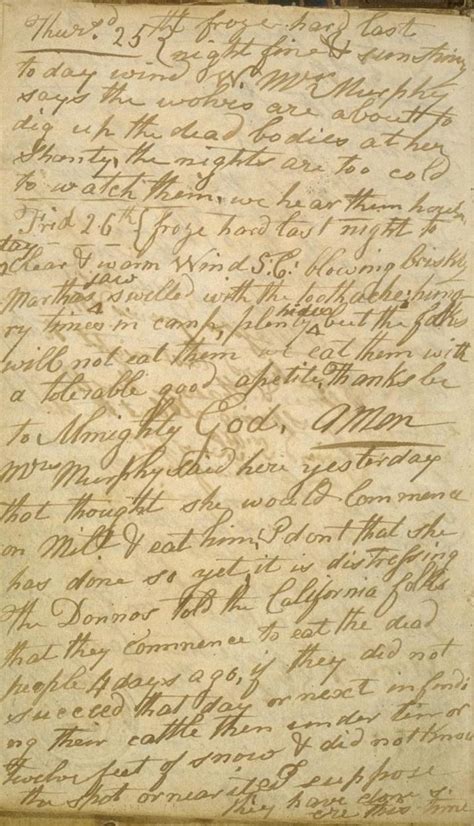 Thursd 25th { froze hard last
night fine & sunshiny
today wind W. Mrs Murphy
says the wolves are about to
dig up the dead bodies at her
Shanty, the nights are too cold
to watch them, we hear them howl
Frid 26th { froze hard last night to
day clear & warm Wind S.E: blowing briskly
Marthas jaw swelled with the toothache; hung
ry times in camp, plenty hides but the folks
will not eat them we eat them with
a tolerable good apetite. Thanks be
to Almighty God, Amen
Mrs Murphy said here yesterday
that thought she would Commence
on Milt & eat him, I dont that she
has done so yet, it is distressing
The Donnos told the California folks
that they commence to eat the dead
people 4 days ago, if they did not
succeed that day or next in findi
ng their cattle then under ten or
twelve feet of snow & did not know
the spot or near it, I suppose
they have done so
ere this time